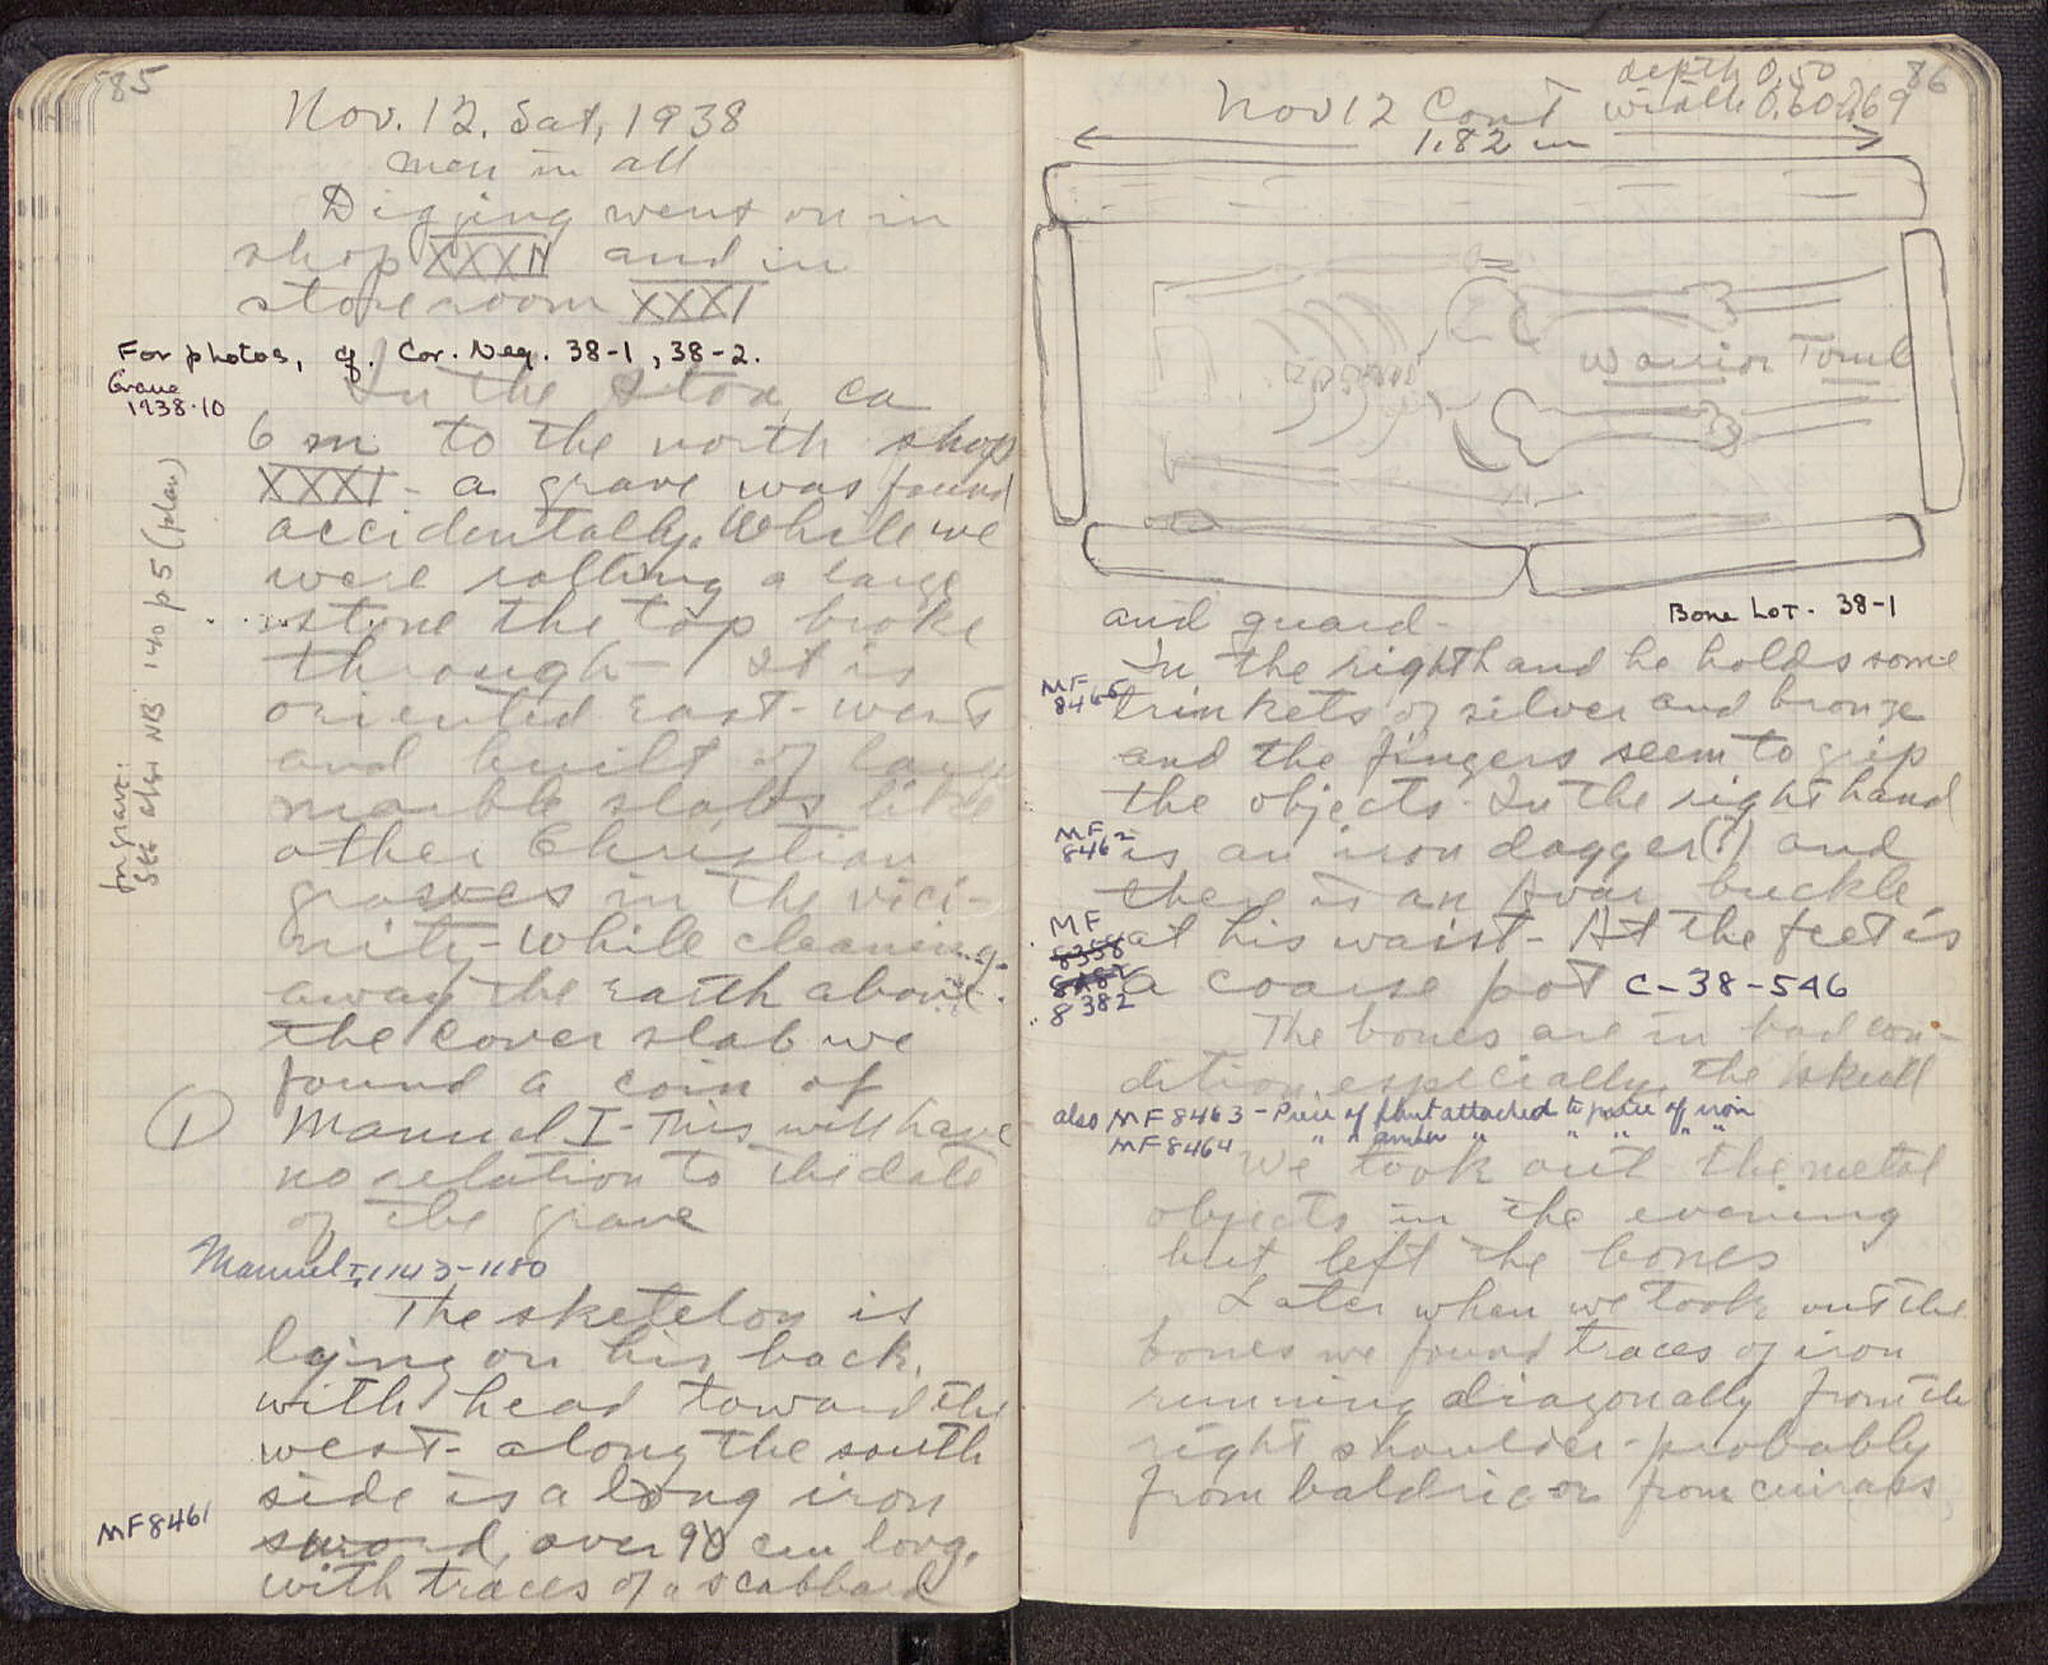 85
Nov. 12, Sat, 1938
men in all
Digging went on in
shop XXXII and in
storeroom XXXI
For photos, cf. Cor. Neg. 38-1, 38-2.
Grave
1938-10
In the Stoa, ca
6 m to the north shop
XXXI - a grave was found
accidentally. While we
were rolling a large
stone the top broke
through - It is
oriented east-west
and built of large
marble slabs like
other Christian
graves in the vici-
nity - While cleaning
away the earth above
the cover slab we
found a coin of
① Manuel I - This will have
no relation to the date
of the grave
Manuel I, 1143-1180
The sketelon is
lying on his back,
with head toward the
west - along the south
side is a long iron
MF8461
sword, over 90 cm long,
with traces of a scabbard
for grave:
see also NB 140 p 5 (plan)
86
Nov 12 Cont
depth 0,50
width 0,60-0,69
1,82 m
Warrior Tomb
Bone Lot - 38-1
and guard -
In the right hand he holds some
MF
8465
trinkets of silver and bronze
and the fingers seem to grip
the objects - In the right hand
MF
8462
is an iron dagger (?) and
there is an Avar buckle
MF
8358
8382
at his waist - At the feet is
a coarse pot C-38-546
The bones are in bad con-
dition, especially, the skull
also MF 8463 - Piece of flint attached to piece of iron
MF 8464 " " amber " " " " "
We took out the metal
objects in the evening
but left the bones
Later when we took out the
bones we found traces of iron
running diagonally from the
right shoulder - probably
from baldric or from cuirass,